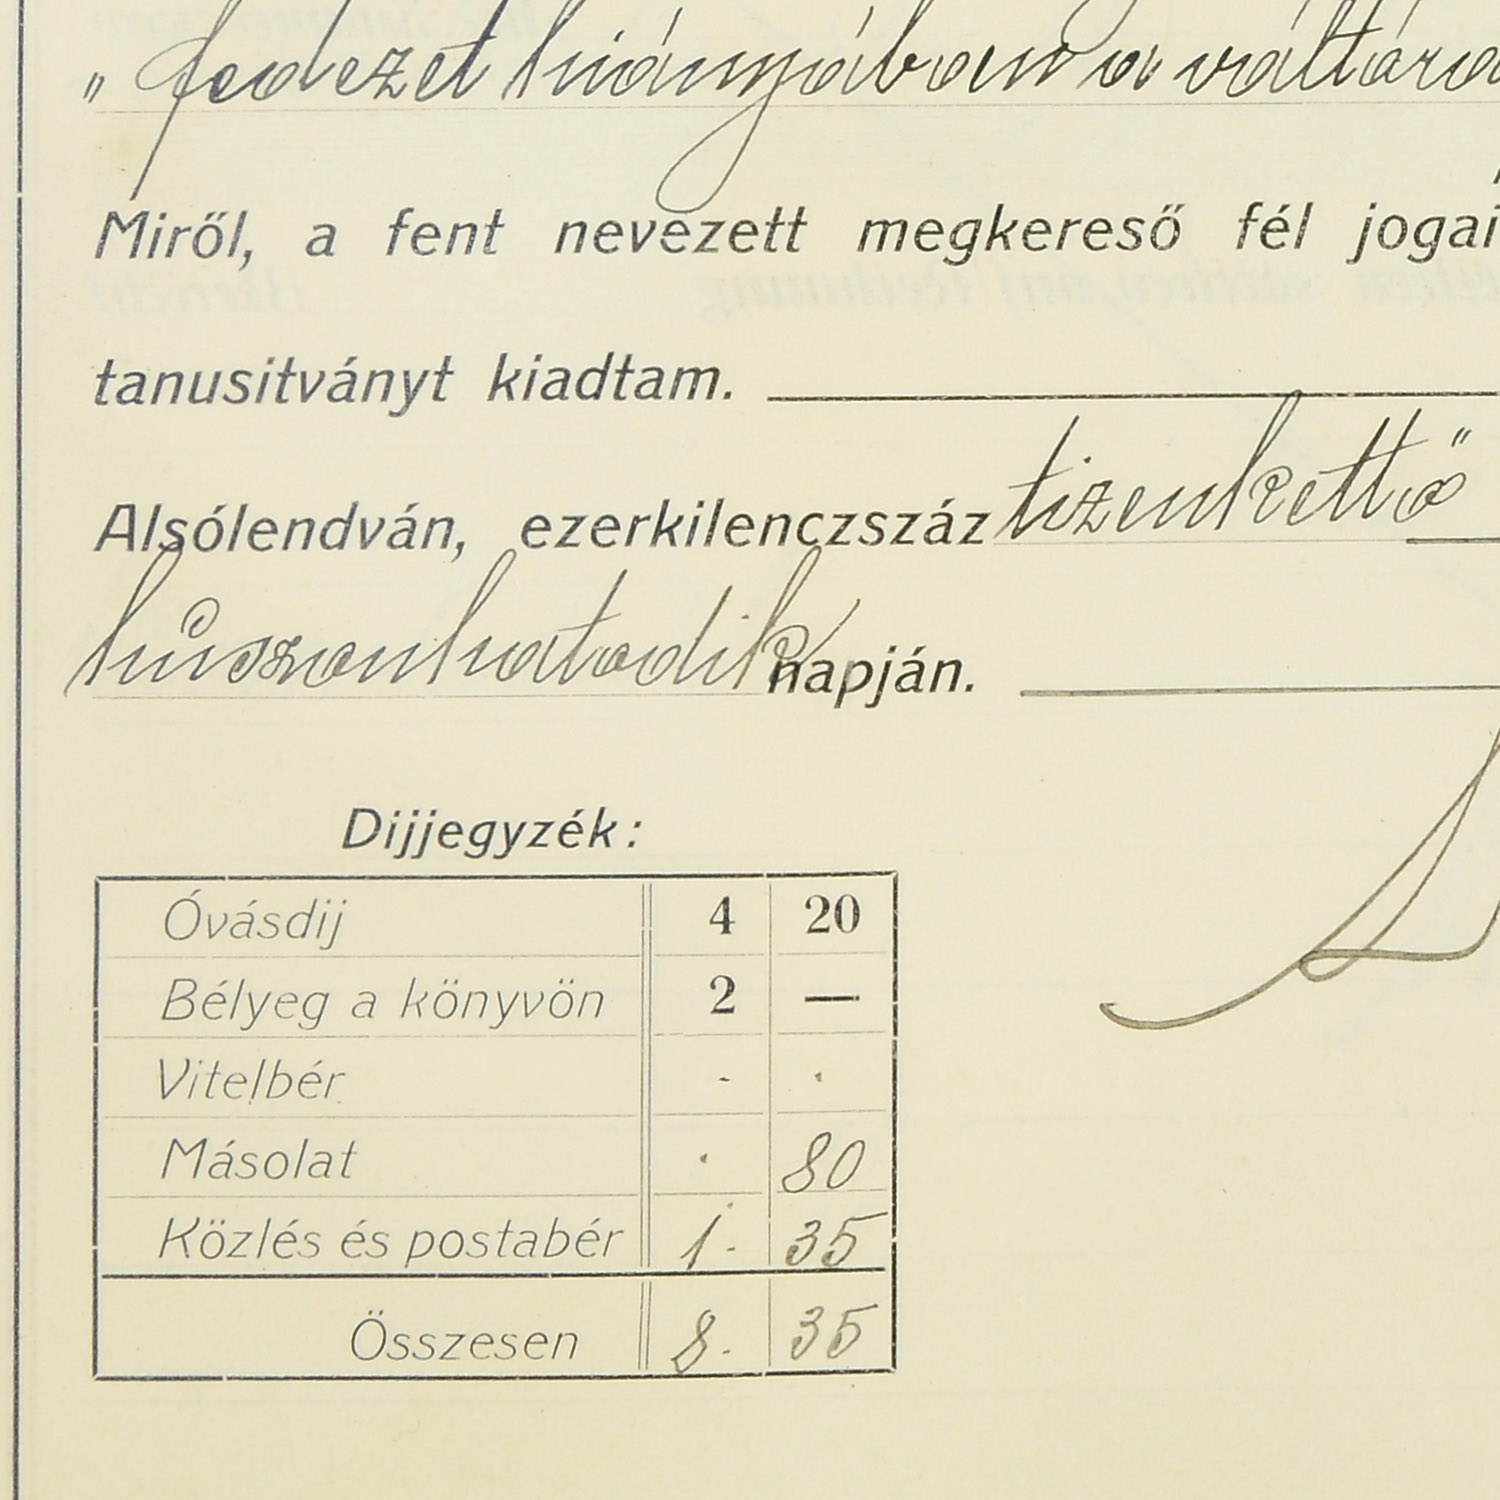 „ fedezet hiányában a váltóra
Miről, a fent nevezett megkereső fél jogai
tanusitványt kiadtam.
Alsólendván, ezerkilenczszáz tizenkettő
húszonhatodik napján.
Dijjegyzék:
Óvásdij 4 20
Bélyeg a könyvön 2 —
Vitelbér - .
Másolat . 80
Közlés és postabér 1.- 35
Összesen 8.- 35